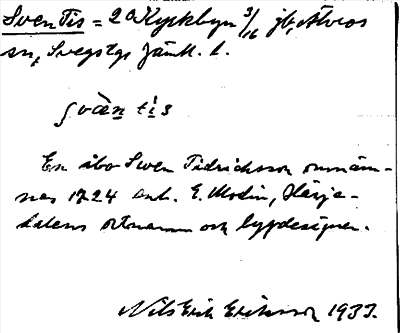 Sven Tis = 20 Kyrkbyn 3/16 jb, Älvros
sn, Svegs tgs Jämtl. l.
svèn tis
En åbo Swen Tidricksson omnäm-
nes 1724 enl. E. Modin, Härje-
dalens ortnamn och bygdesägner.
Nils Erik Eriksson 1937.